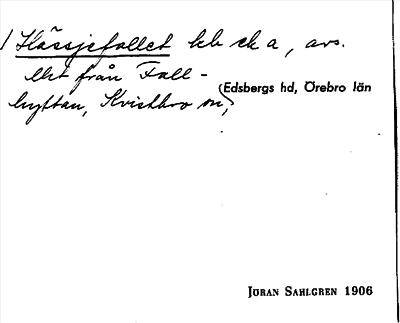 Hässjefallet kb ek a, avs.
llet från Fall-
hyttan, Kvistbro sn,
Edsbergs hd, Örebro län
JÖRAN SAHLGREN 1906